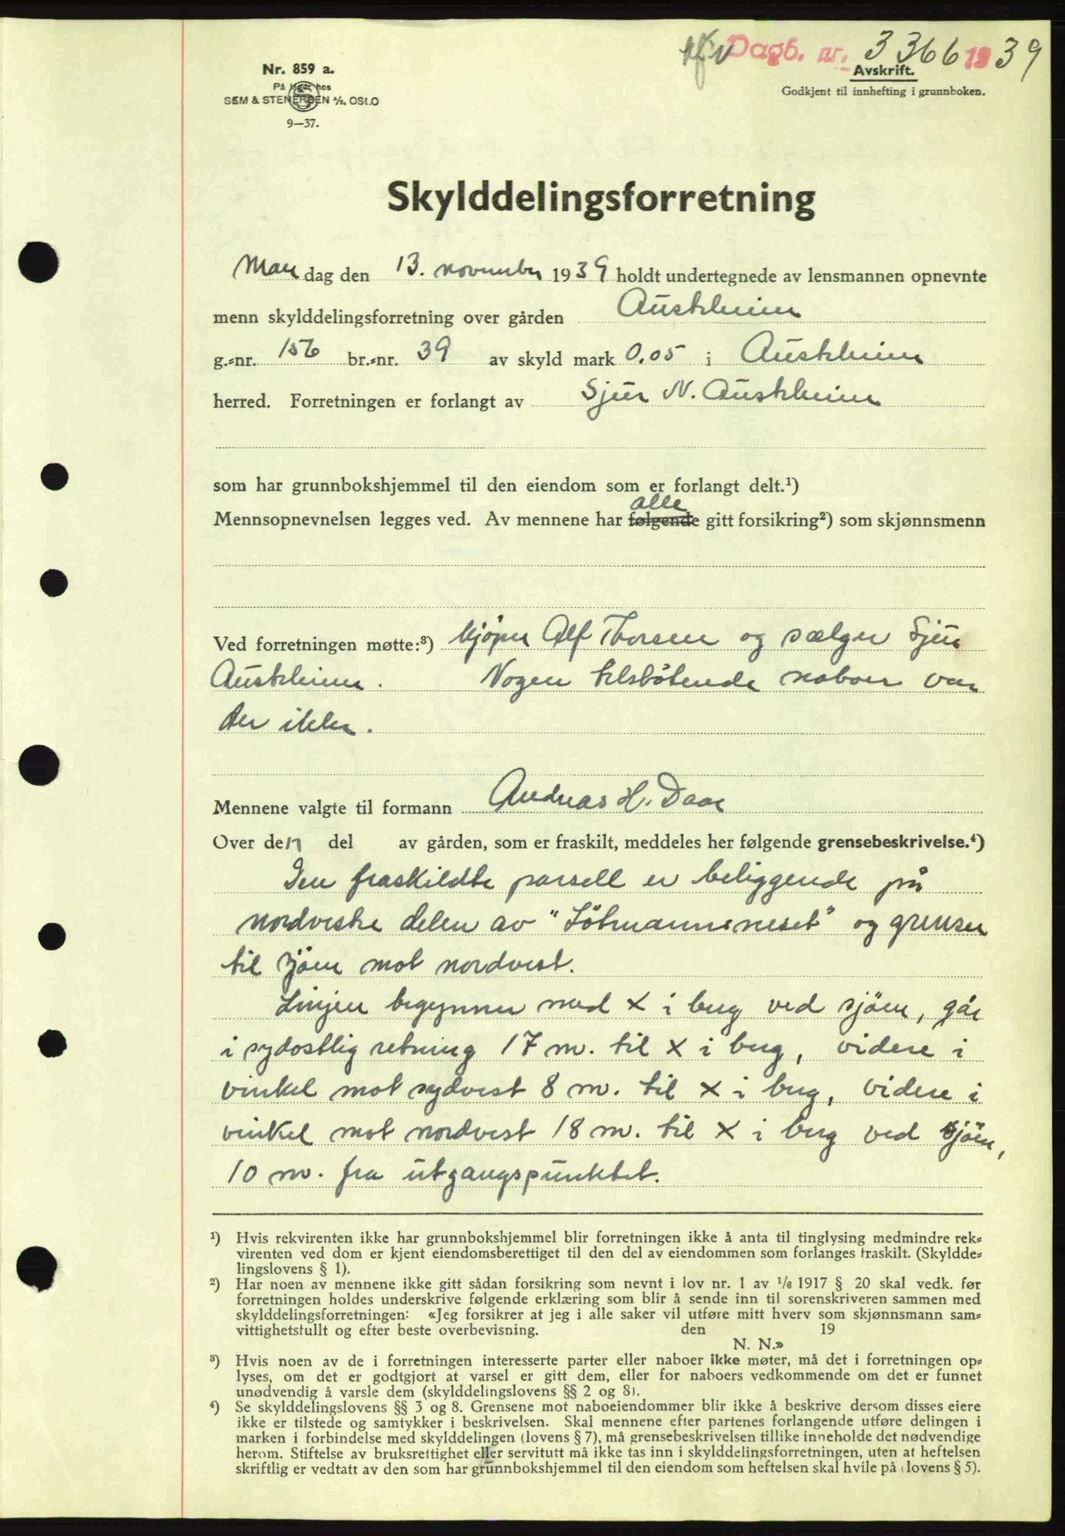 Dagb. nr. 3366 1939
Nr. 859 a.
Avskrift.
På lager hos
SEM & STENERSEN A/S, OSLO
Godkjent til innhefting i grunnboken.
9—37.
Skylddelingsforretning
Mandag den 13. november 1939 holdt undertegnede av lensmannen opnevnte
menn skylddelingsforretning over gården Austrheim
g.-nr. 156 br.-nr. 39 av skyld mark 0.05 i Austrheim
herred. Forretningen er forlangt av Sjur N. Austrheim
som har grunnbokshjemmel til den eiendom som er forlangt delt.¹)
alle
Mennsopnevnelsen legges ved. Av mennene har følgende gitt forsikring²) som skjønnsmenn
Ved forretningen møtte:³) kjöper Alf Thorsen og sælger Sjur
Austrheim. Nogen tilstötende naboer var
der ikke.
Mennene valgte til formann Andreas H. Daae
Over den del av gården, som er fraskilt, meddeles her følgende grensebeskrivelse.⁴)
Den fraskildte parsell er beliggende på
nordvestre delen av "Lötmannsneset" og grenser
til sjöen mot nordvest.
Linjen begynner med X i berg ved sjöen, går
i sydostlig retning 17 m. til X i berg, videre i
vinkel mot sydvest 8 m. til X i berg, videre i
vinkel mot nordvest 18 m. til X i berg ved sjöen,
10 m. fra utgangspunktet.
¹) Hvis rekvirenten ikke har grunnbokshjemmel blir forretningen ikke å anta til tinglysing medmindre rek-
virenten ved dom er kjent eiendomsberettiget til den del av eiendommen som forlanges fraskilt. (Skyldde-
lingslovens § 1).
²) Har noen av mennene ikke gitt sådan forsikring som nevnt i lov nr. 1 av 1/6 1917 § 20 skal vedk. før
forretningen holdes underskrive følgende erklæring som blir å sende inn til sorenskriveren sammen med
skylddelingsforretningen: «Jeg forsikrer at jeg i alle saker vil utføre mitt hverv som skjønnsmann sam-
vittighetsfullt og efter beste overbevisning. den 19
N. N.»
³) Hvis noen av de i forretningen interesserte parter eller naboer ikke møter, må det i forretningen op-
lyses, om det er godtgjort at varsel er gitt dem, eller for naboers vedkommende om det er funnet
unødvendig å varsle dem (skylddelingslovens §§ 2 og 8).
⁴) Se skylddelingslovens §§ 3 og 8. Grensene mot naboeiendommer blir ikke å beskrive dersom disses eiere
ikke er tilstede og samtykker i beskrivelsen. Skal mennene efter partenes forlangende utføre delingen i
marken i forbindelse med skylddelingen (lovens § 7), må grensebeskrivelsen tillike inneholde det nødvendige
herom. Stiftelse av bruksrettighet eller servitutt må ikke tas inn i skylddelingsforretningen, uten at heftelsen
skriftlig er vedtatt av den som har grunnbokshjemmel til den eiendom som heftelsen skal hvile på (lovens § 5).